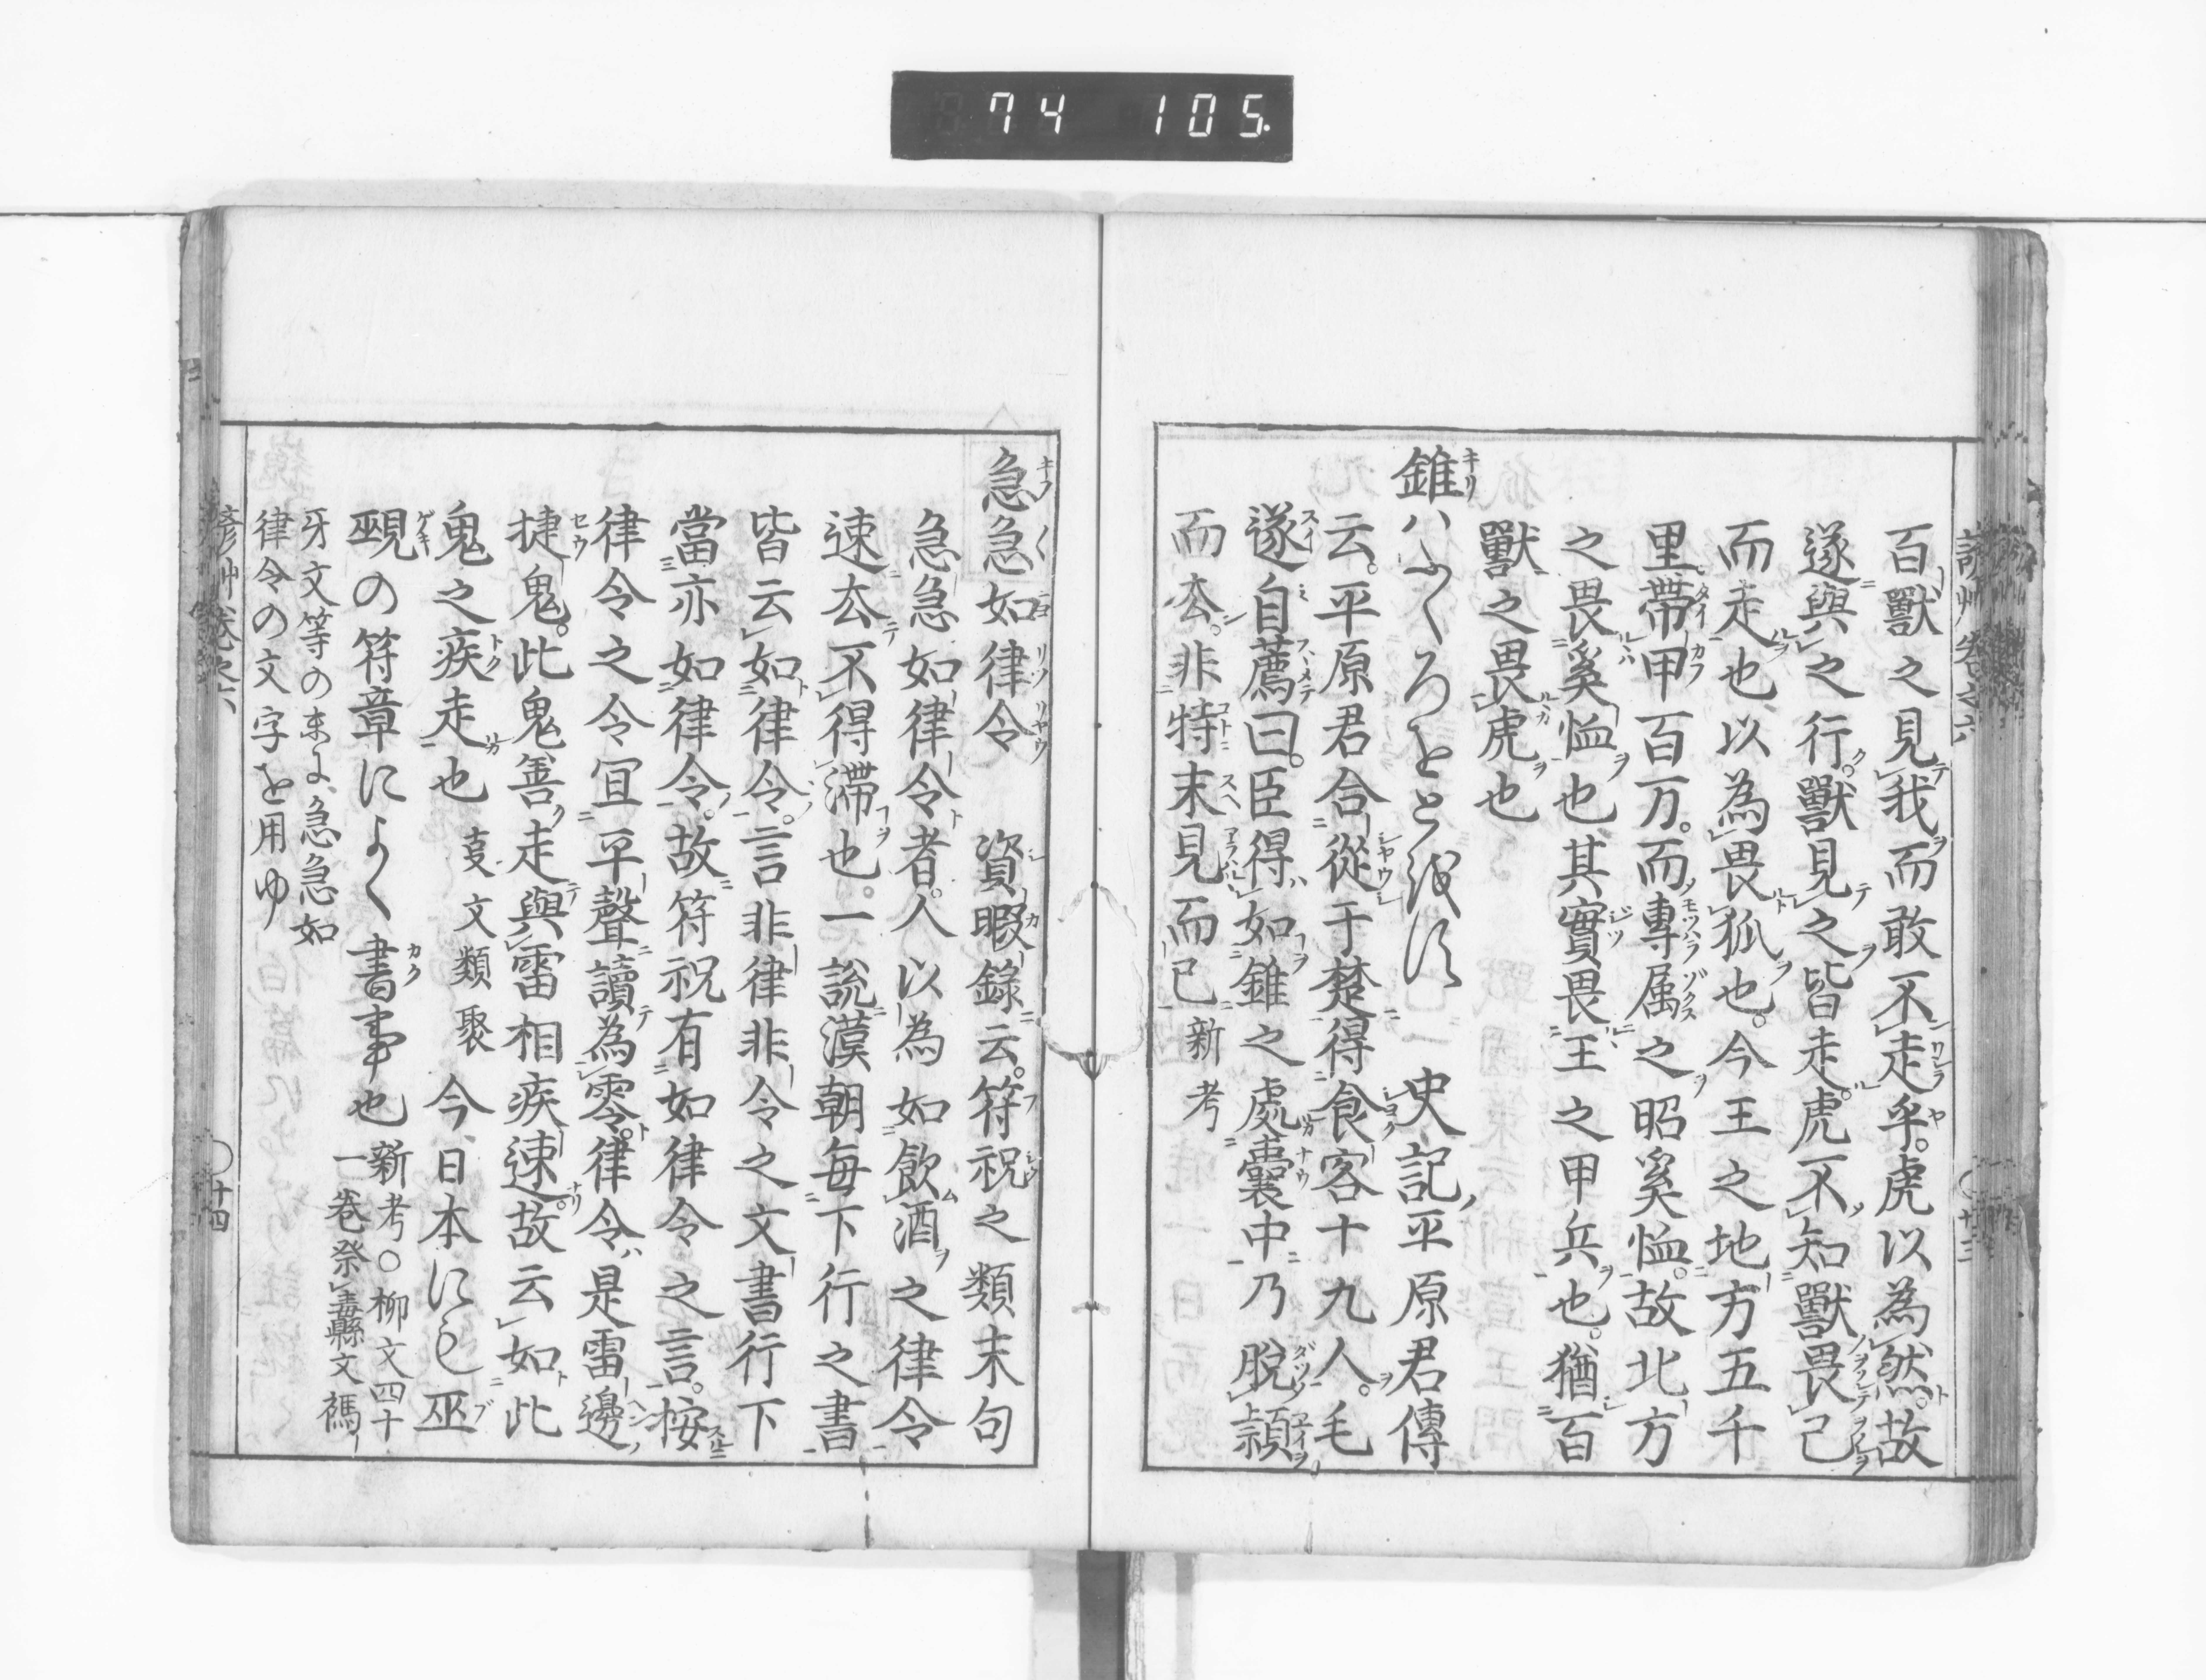 74 105.
諺艸卷之六
十三
百獸之見我而敢不走乎。虎以為然。故
遂與之行。獸見之皆走。虎不知獸畏己
而走也以為畏狐也。今王之地方五千
里。帶甲百万。而專属之昭奚恤。故北方
之畏奚恤也其實畏王之甲兵也。猶百
獸之畏虎也
錐ハふくろをとをす 史記平原君傳
云。平原君合從于楚得食客十九人。毛
遂自薦曰。臣得如錐之處囊中乃脫頴
而厺。非特末見而已 新考
急急如律令 資暇錄云。符祝之類末句
急急如律令者。人以為如飲酒之律令
速厺不得滞也。一說漢朝每下行之書
皆云如律令。言非律非令之文書行下
當亦如律令。故符祝有如律令之言。按
律令之令冝平聲讀為零。律令ハ是雷邊
捷鬼。此鬼善走與雷相疾速。故云如此
鬼之疾走也 事文類聚 今日本にも巫
覡の符章によく書事也 新考〇柳文四十
一卷祭纛文禡
牙文等の末に、急急如
律令の文字を用ゆ
諺艸卷之六
十四